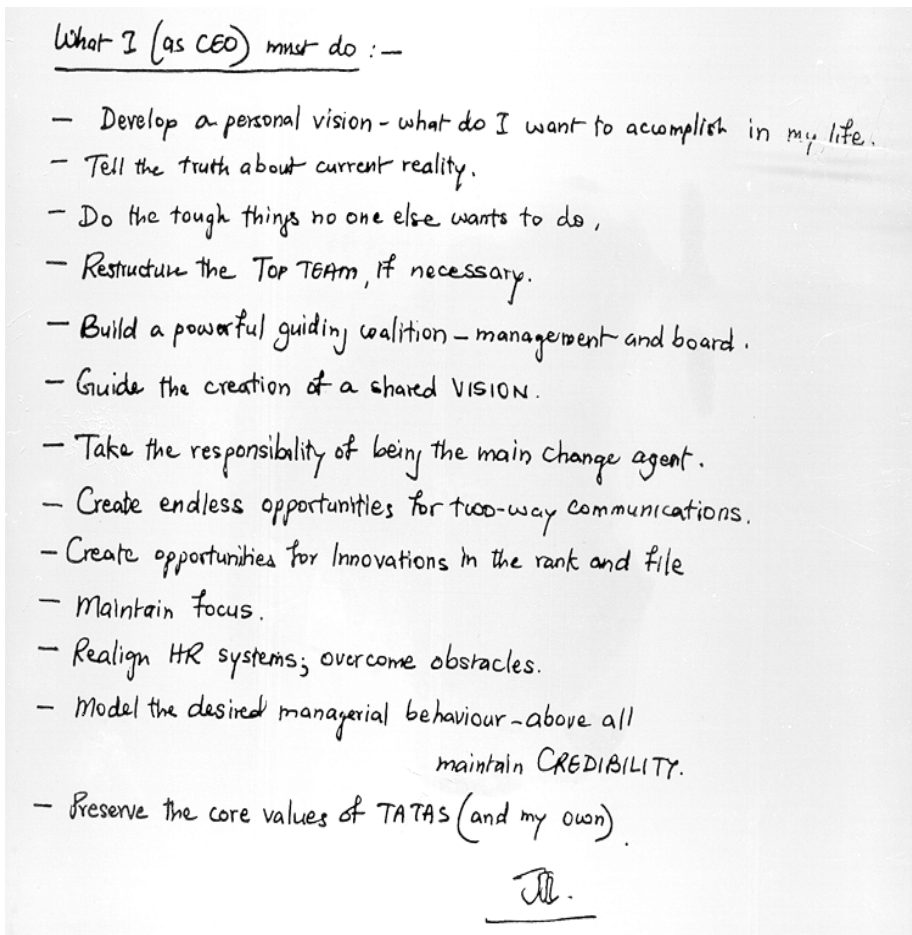 What I (as CEO) must do :-
- Develop a personal vision - what do I want to accomplish in my life.
- Tell the truth about current reality.
- Do the tough things no one else wants to do,
- Restructure the TOP TEAM, if necessary.
- Build a powerful guiding coalition - management and board.
- Guide the creation of a shared VISION.
- Take the responsibility of being the main change agent.
- Create endless opportunities for two-way communications.
- Create opportunities for Innovations in the rank and file
- Maintain focus.
- Realign HR systems; overcome obstacles.
- Model the desired managerial behaviour - above all
maintain CREDIBILITY.
- Preserve the core values of TATAS (and my own).